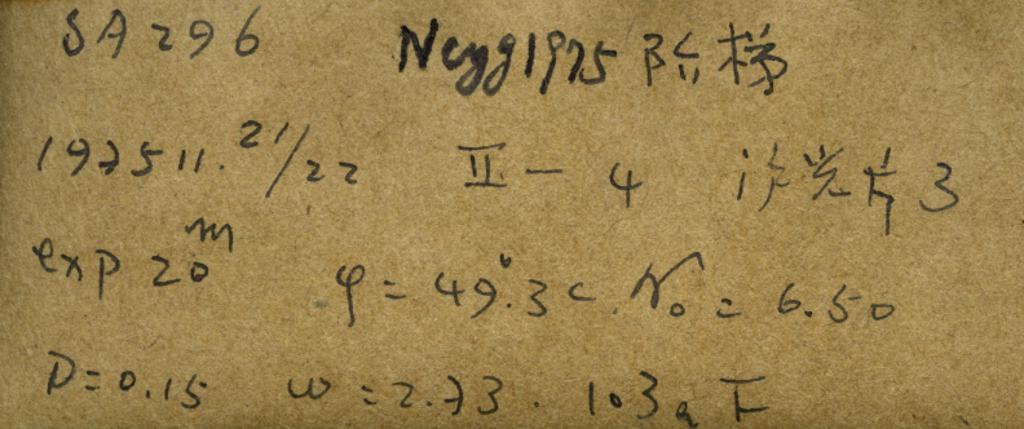 SA296 Ncyg1975 阶梯
1975 11. 21/22 Ⅱ-4 泸光片3
exp 20m φ=49°.3c. N₀=6.50
D=0.15 ω=2.73. 103a 下